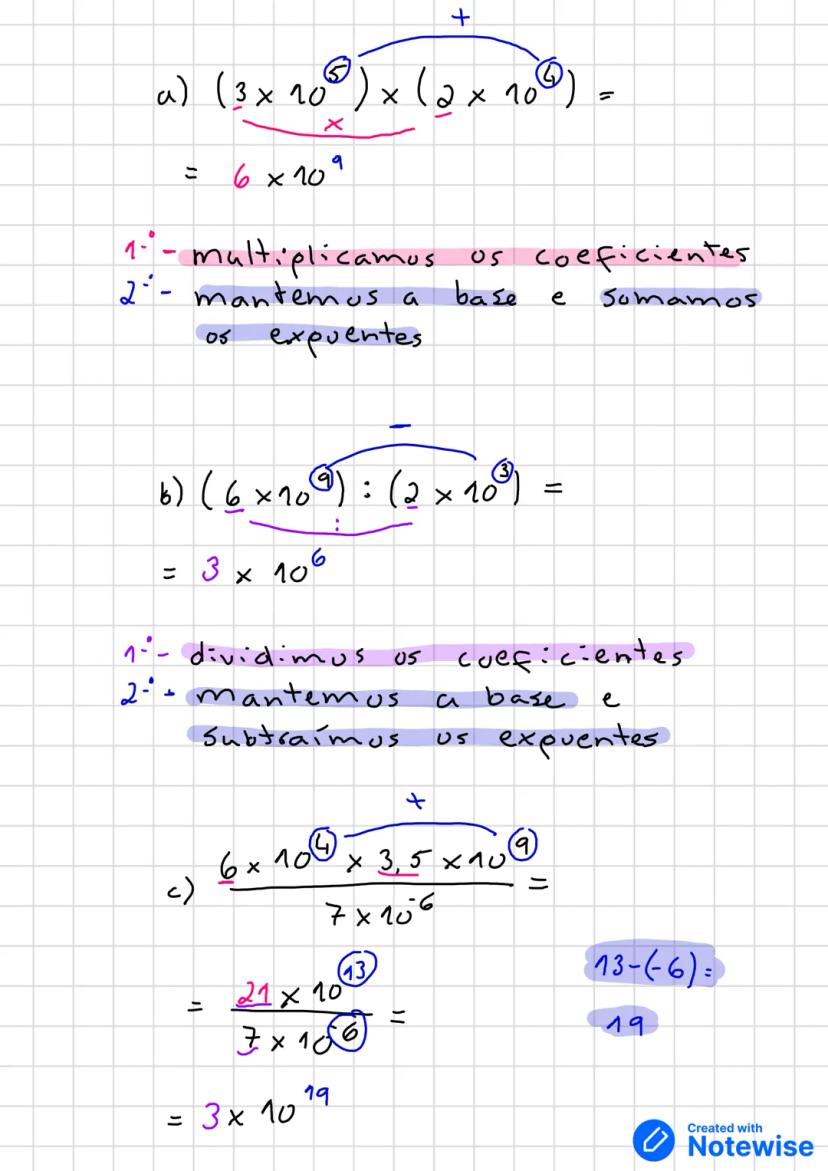 +
a) (3 × 10⁵) × (2 × 10⁴) =
×
= 6 × 10⁹
1.º - multiplicamos os coeficientes
2.º - mantemos a base e somamos
os expoentes
-
b) (6 × 10⁹) : (2 × 10³) =
:
= 3 × 10⁶
1.º - dividimos os coeficientes
2.º - mantemos a base e
subtraímos os expoentes
+
c) (6 × 10⁴ × 3,5 × 10⁹) / (7 × 10⁻⁶) =
= (21 × 10¹³) / (7 × 10⁻⁶) =
13-(-6)=
19
= 3 × 10¹⁹
Created with
Notewise